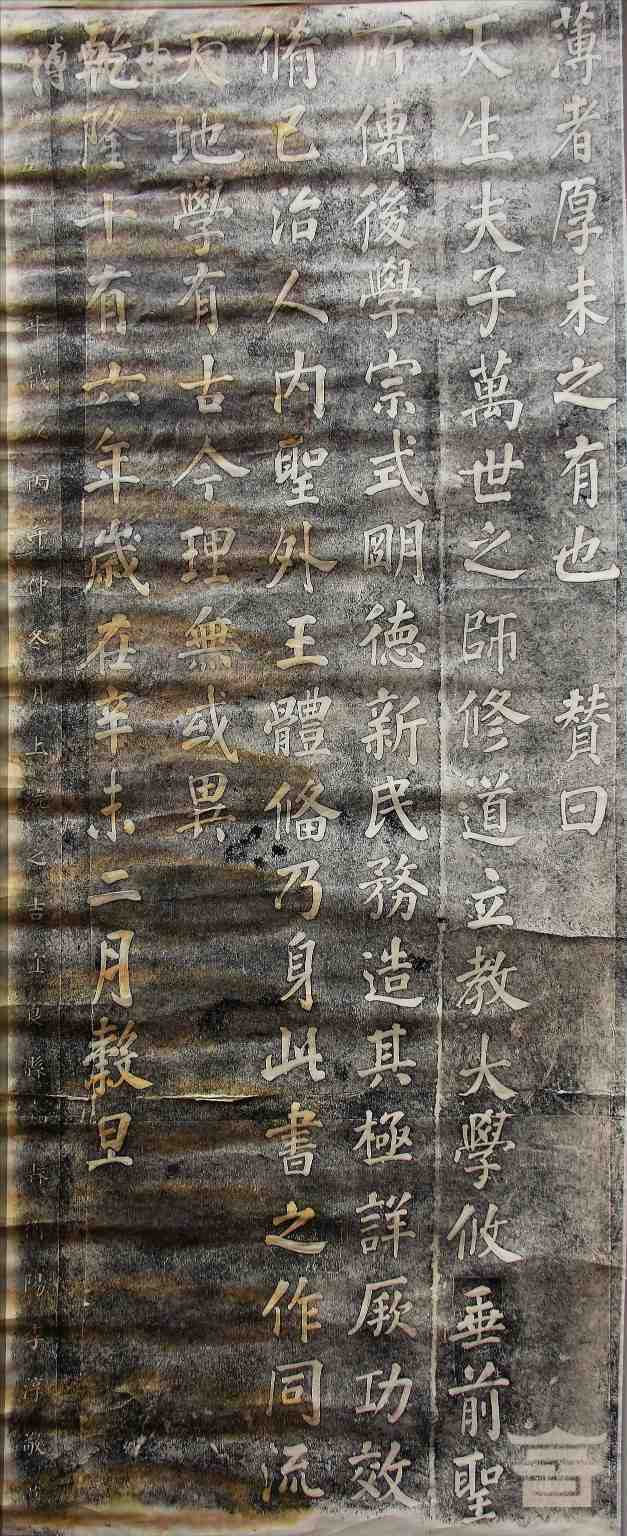 薄者厚未之有也 贊曰
天生夫子萬世之師修道立教大學攸垂前聖
所傳後學宗式明德新民務造其極詳厥功效
脩己治人內聖外王體俻乃身此書之作同流
天地學有古今理無或異
乾隆十有六年歲在辛未二月穀旦
年 仲冬月上 之吉 縣